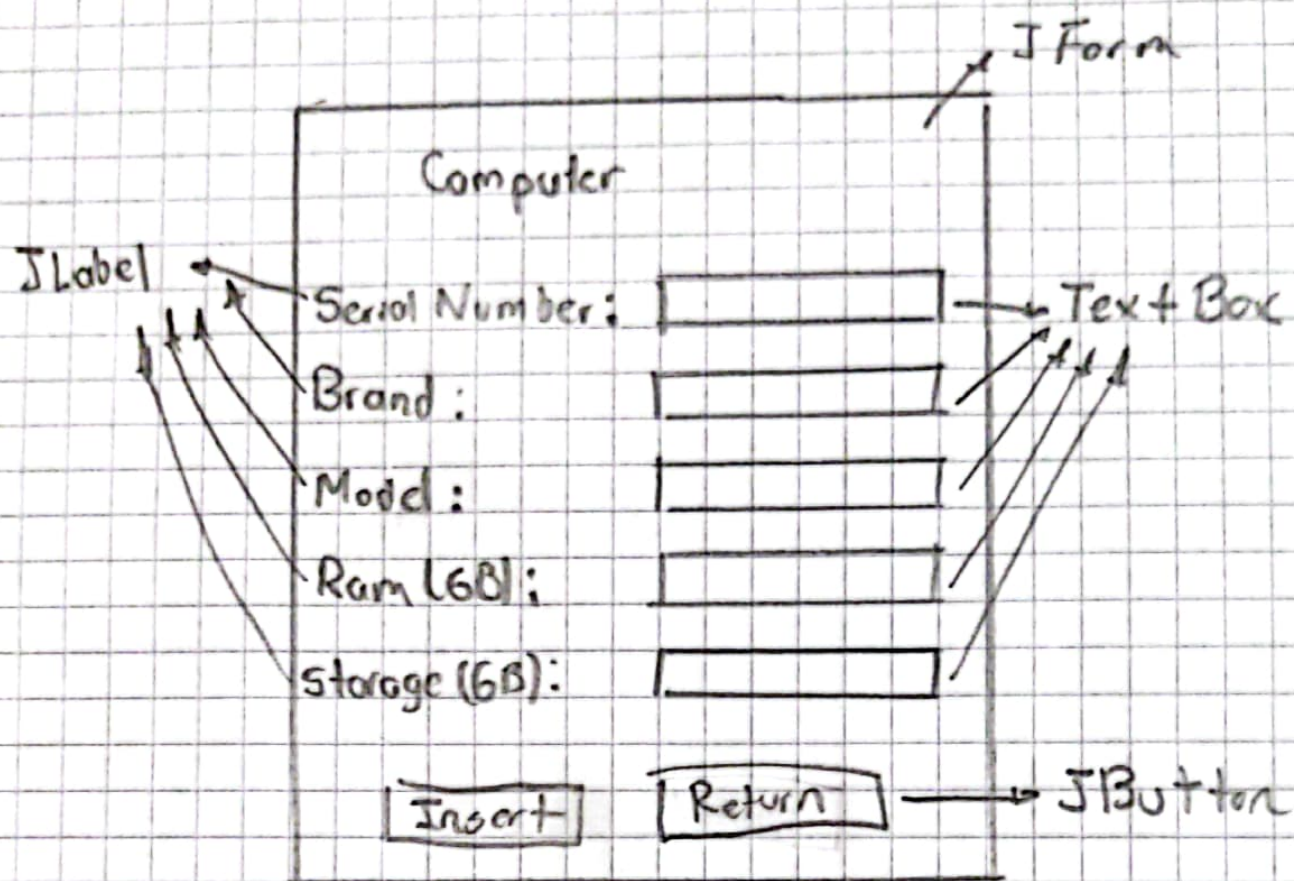 JForm
Computer
JLabel
Serial Number:
Text Box
Brand:
Model:
Ram (GB):
Storage (GB):
Insert
Return
JButton